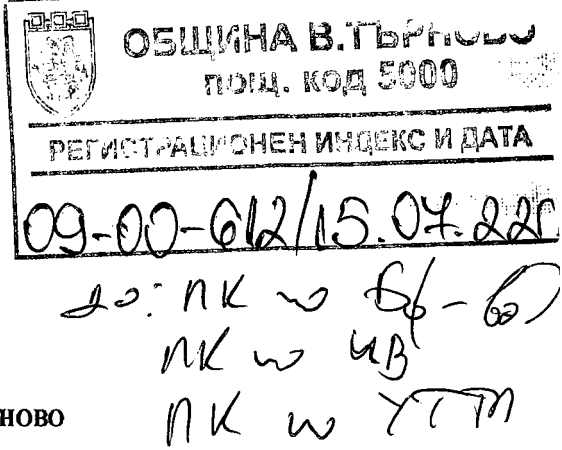 ОБЩИНА В.ТЪРНОВО
пощ. код 5000
РЕГИСТРАЦИОНЕН ИНДЕКС И ДАТА
09-00-612/15.07.22г
до: ПК по
ПК по ИВ
ПК по УТТП
НОВО